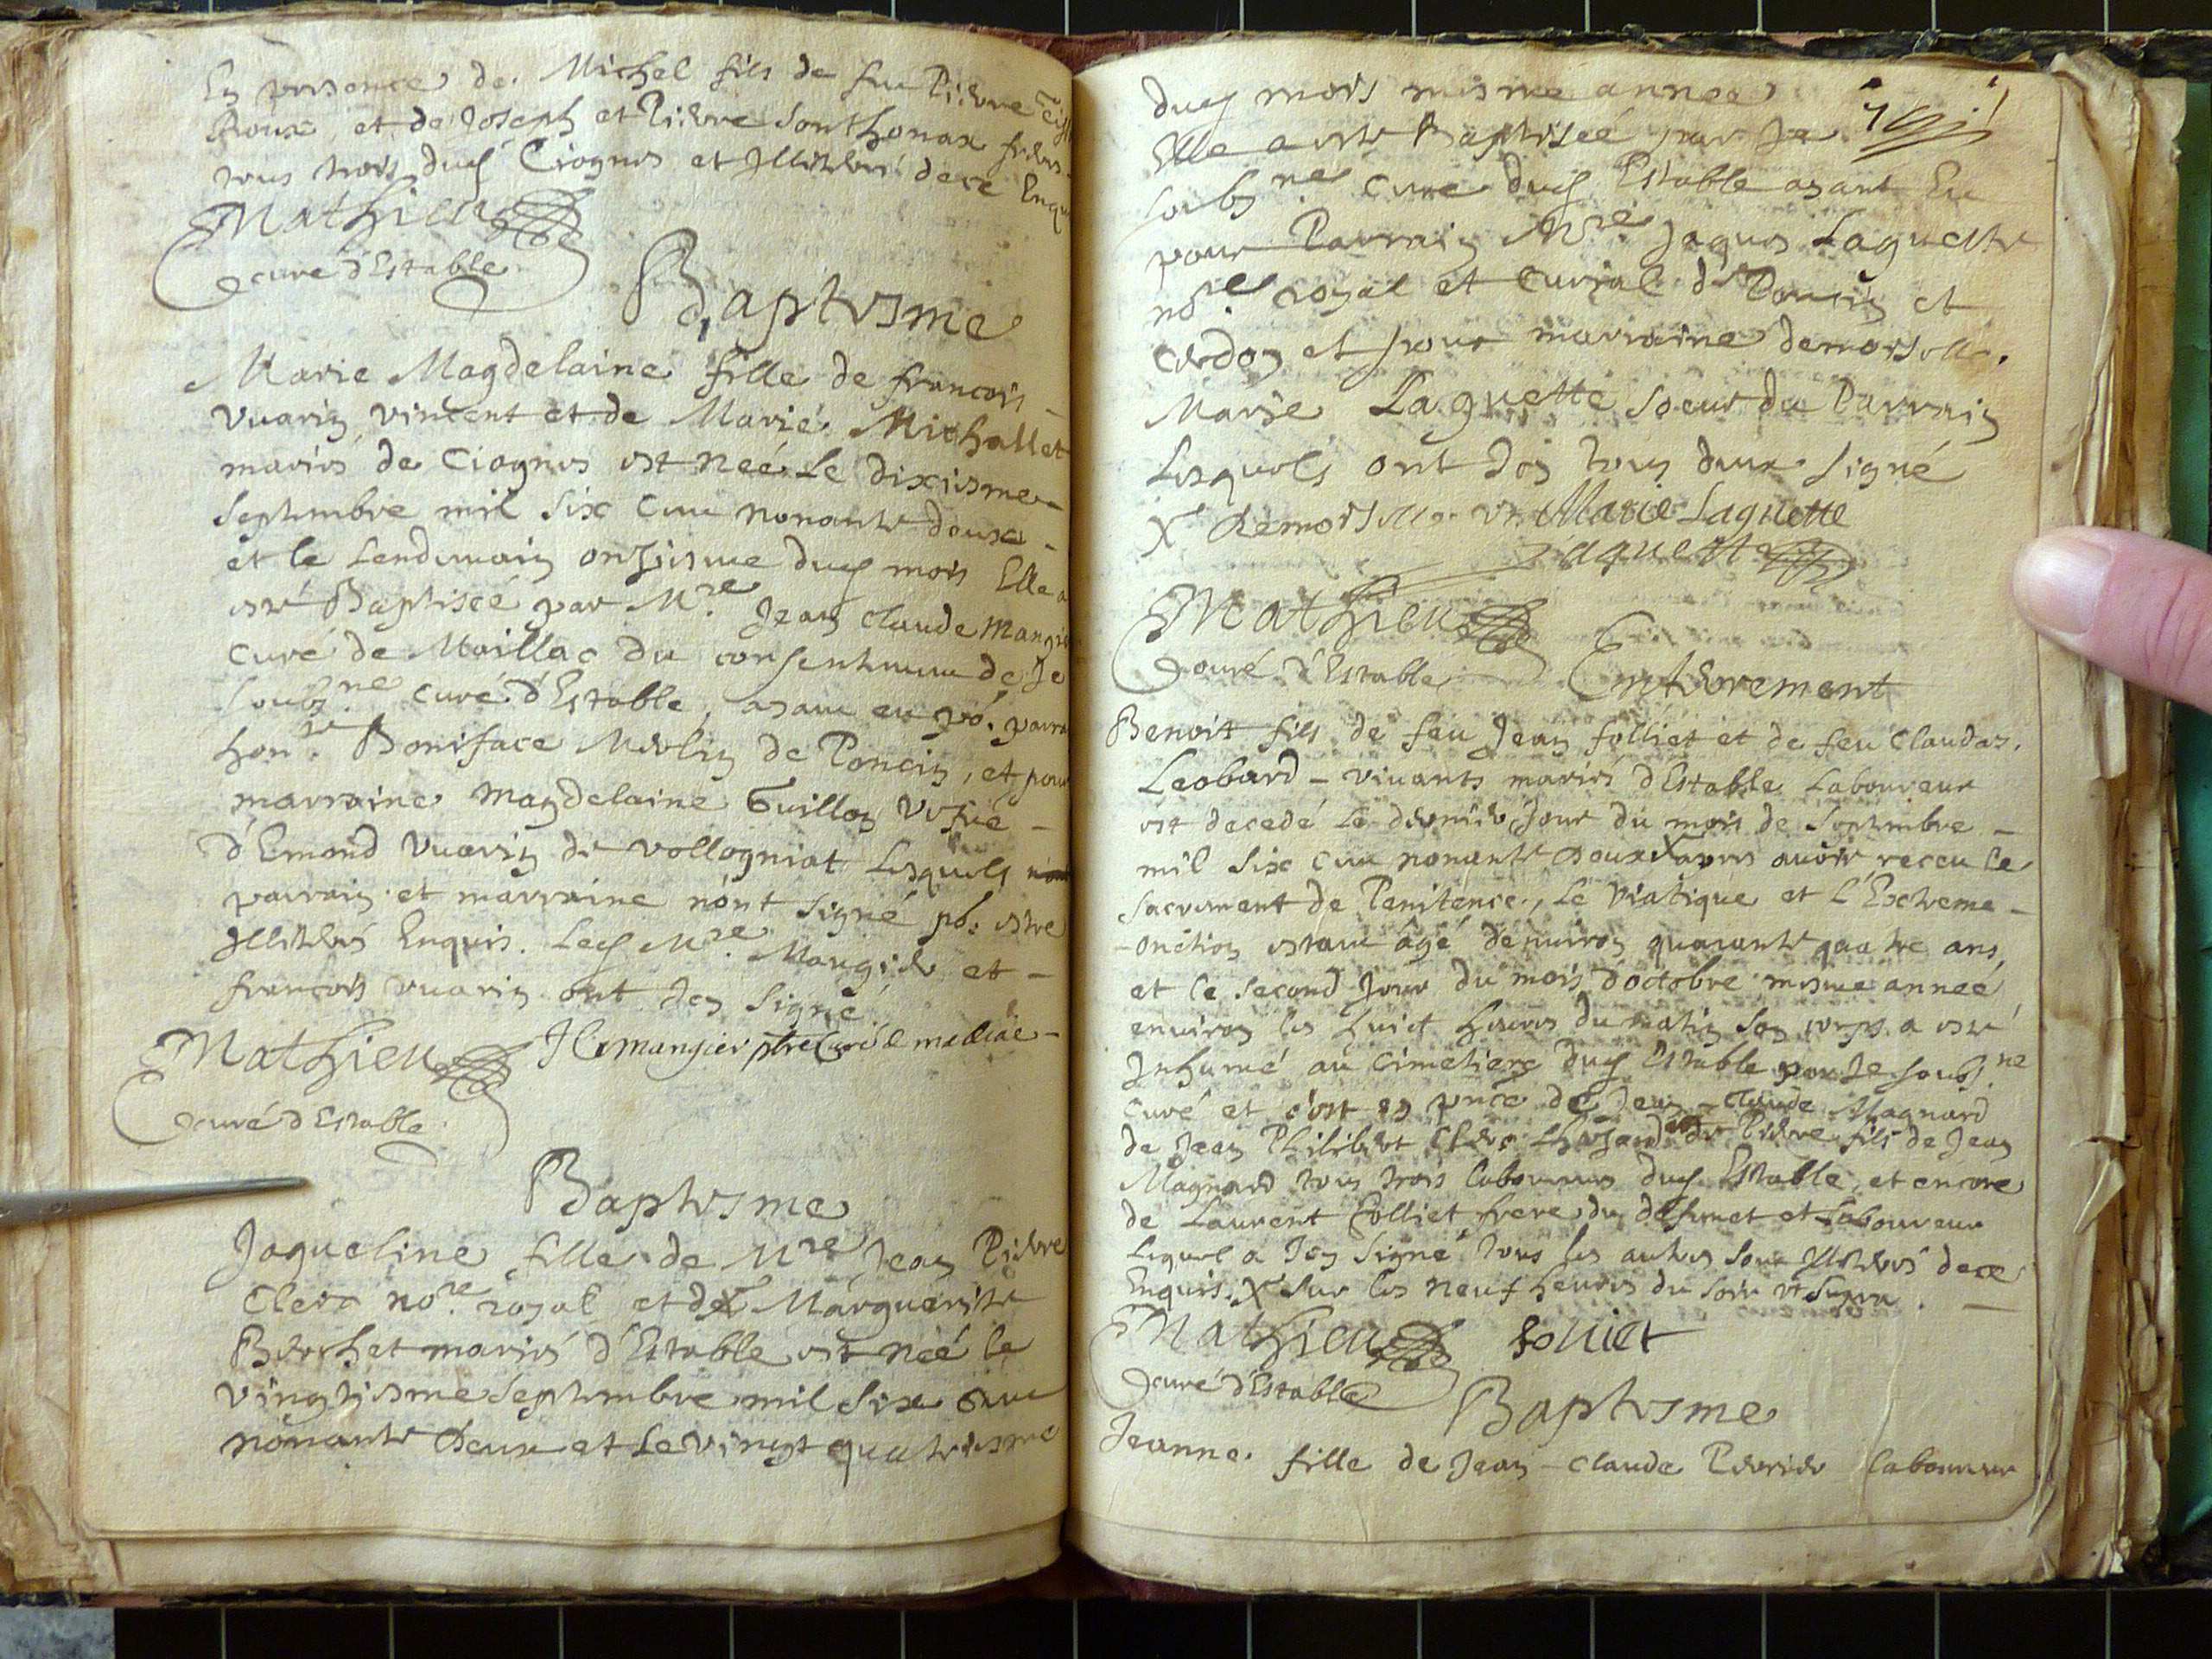 En presence de Michel fils de feu Pierre
Roux, et de Joseph et Pierre Sonthonax freres
tous trois dud Ciognes et Illitteré de ce Enquis
Mathieu
curé d'Estable
Baptesme
Marie Magdelaine fille de francois
vuarin vincent et de Marie Michallet
mariés de Ciognes est neé le dixiesme
Septembre mil six cent nonante deux
et le Lendemain onziesme dud mois Elle a
esté Baptiseé par Mre Jean Claude Mangier
Curé de Maillac du consentement de Je
soubz.né Curé d'Estable, ayant eu po.
hon.re Boniface Merlin de Poncin, et pour
marraine Magdelaine Guillon vefue
d'Emond Vuarin de vollogniat Lesquels
parrain et marraine n'ont signé po. estre
Illitterés Enquis. Led Mre. Mangier et
francois vuarin ont Icy signé
Mathieu J C mangier ptre Curé
curé d'Estable
Baptesme
Jaqueline fille de Mre Jean Pierre
Clerc no.re royal et de Marguerite
Berchet mariés d'Estable est neé le
vingtiesme Septembre mil six cent
nonante deux et le vingt quatriesme
dud mois mesme anneé
Elle a esté Baptiseé par Je
soubz.né Curé dud Estable ayant Eu
pour Parrain Mre Jaques Laguette
no.re royal et Curial de Poncin et
Cerdon et pour marraine demoiselle
Marie Laguette soeur du Parrain
Lesquels ont Icy tous deux signé
X Demoiselle Marie Laguette
Laguette
Mathieu
curé d'Estable
Enterrement
Benoit fils de feu Jean folliet et de feu Claudaz
Leobard vivants mariés d'Estable Laboureur
est decedé le dernier Jour du mois de Septembre
mil six cent nonante deux X apres avoir receu le
Sacrement de Penitence, le Viatique et l'Extreme
onction estant âgé d'environ quarante quatre ans,
et le second Jour du mois d'octobre mesme anneé
environ les huict heures du matin son corps a esté
Inhumé au Cimetiere dud Estable par Je soubz.né
Curé et c'est en pnce de Jean Claude Magnard
de Jean Philibert Clerc et de Pierre fils de Jean
Magnard tous trois laboureurs dud Estable, et encore
de Laurent folliet frere du defunct et Laboureur
Lequel a Icy signé tous les autres sont Illitterés de ce
Enquis. X sur les neuf heures du soir ut supra
Mathieu foliet
curé d'Estable
Baptesme
Jeanne fille de Jean Claude Perrier laboureur